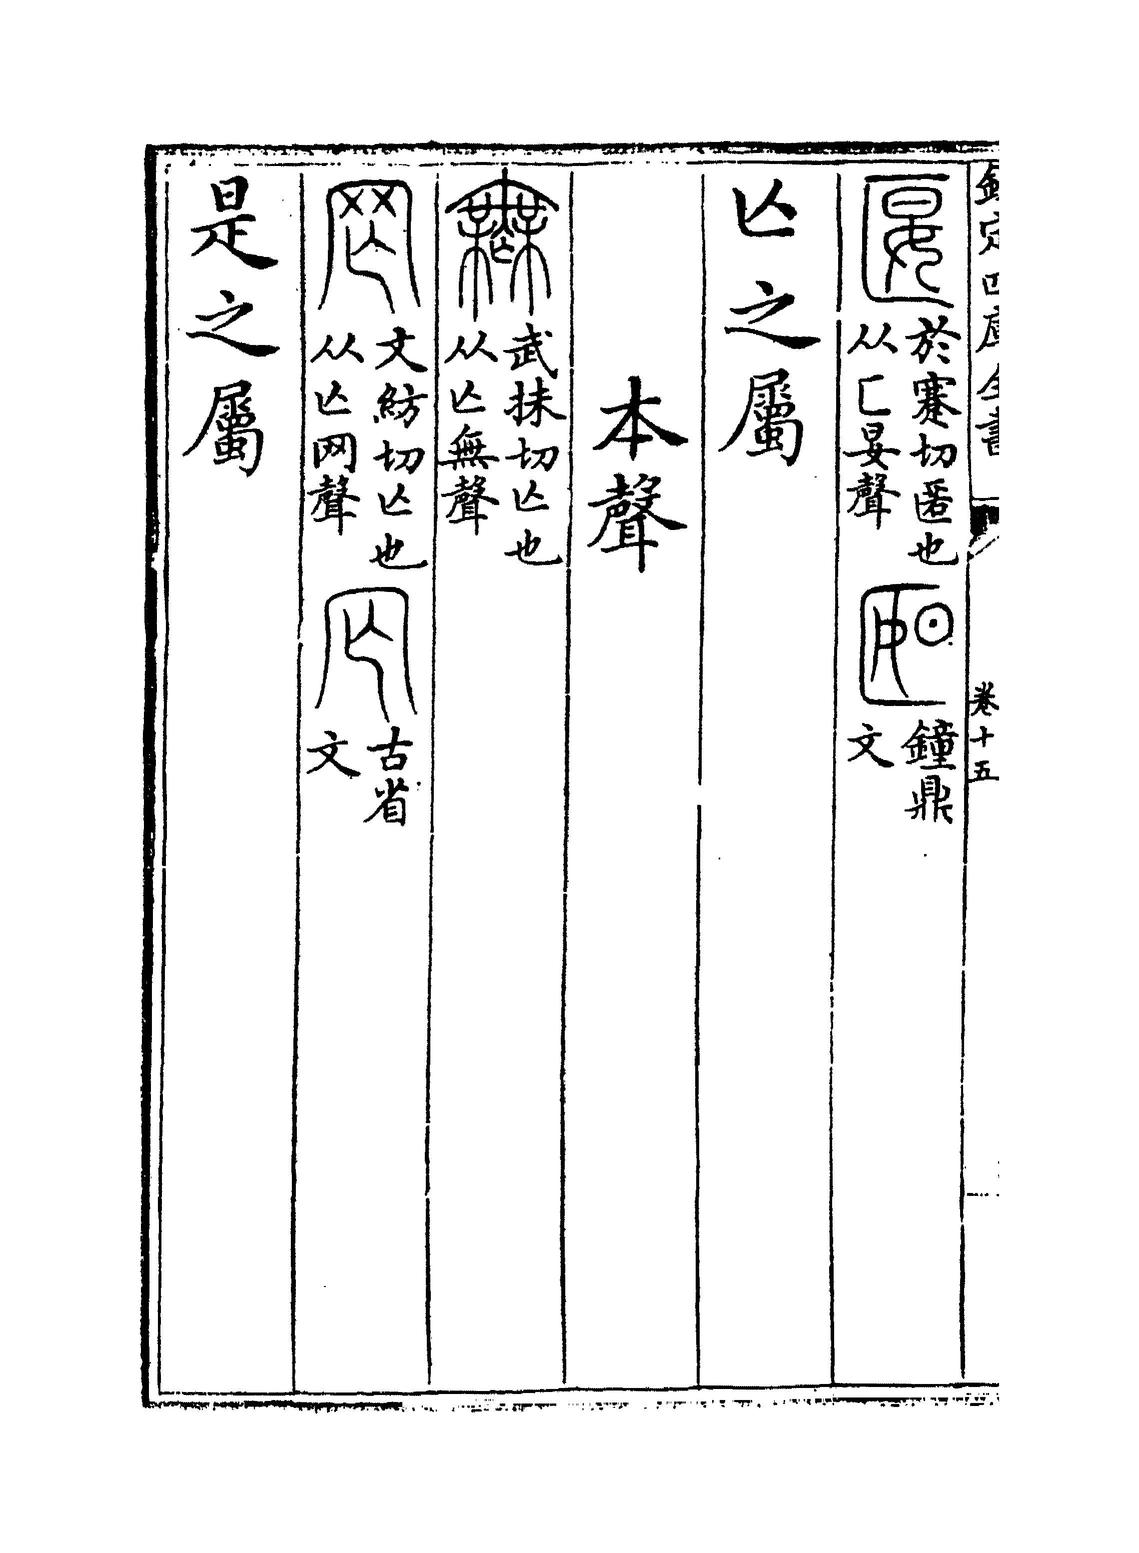 欽定四庫全書
卷十五
匽於蹇切匿也从匸妟聲
鐘鼎文
亾之屬
本聲
𣞤武抹切亾也从亾無聲
罔文紡切亾也从亾网聲
古省文
是之屬